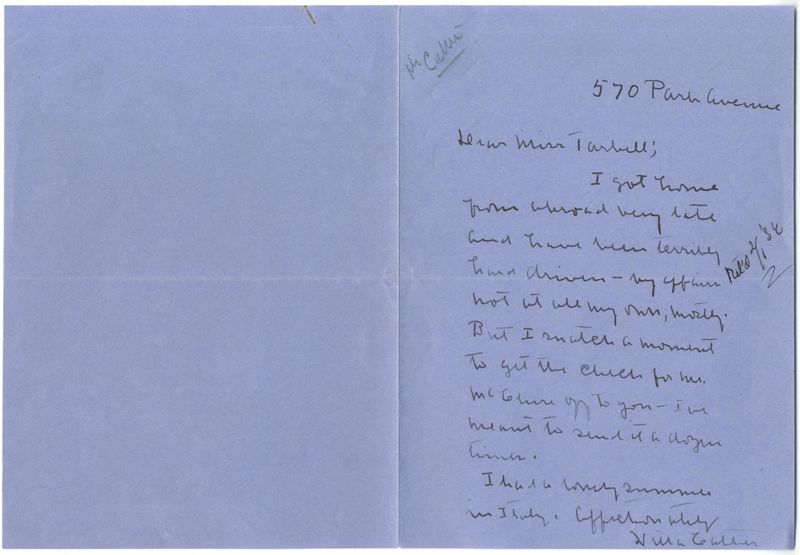 Cather
570 Park Avenue
Dear Miss Tarbell;
I got home
from abroad very late
and have been terribly
hard driven — by affairs
not at all my own, mostly.
But I snatch a moment
to get the check for Mr.
McClure off to you — I've
meant to send it a dozen
times.
I had a lovely summer
in Italy. Affectionately
Willa Cather